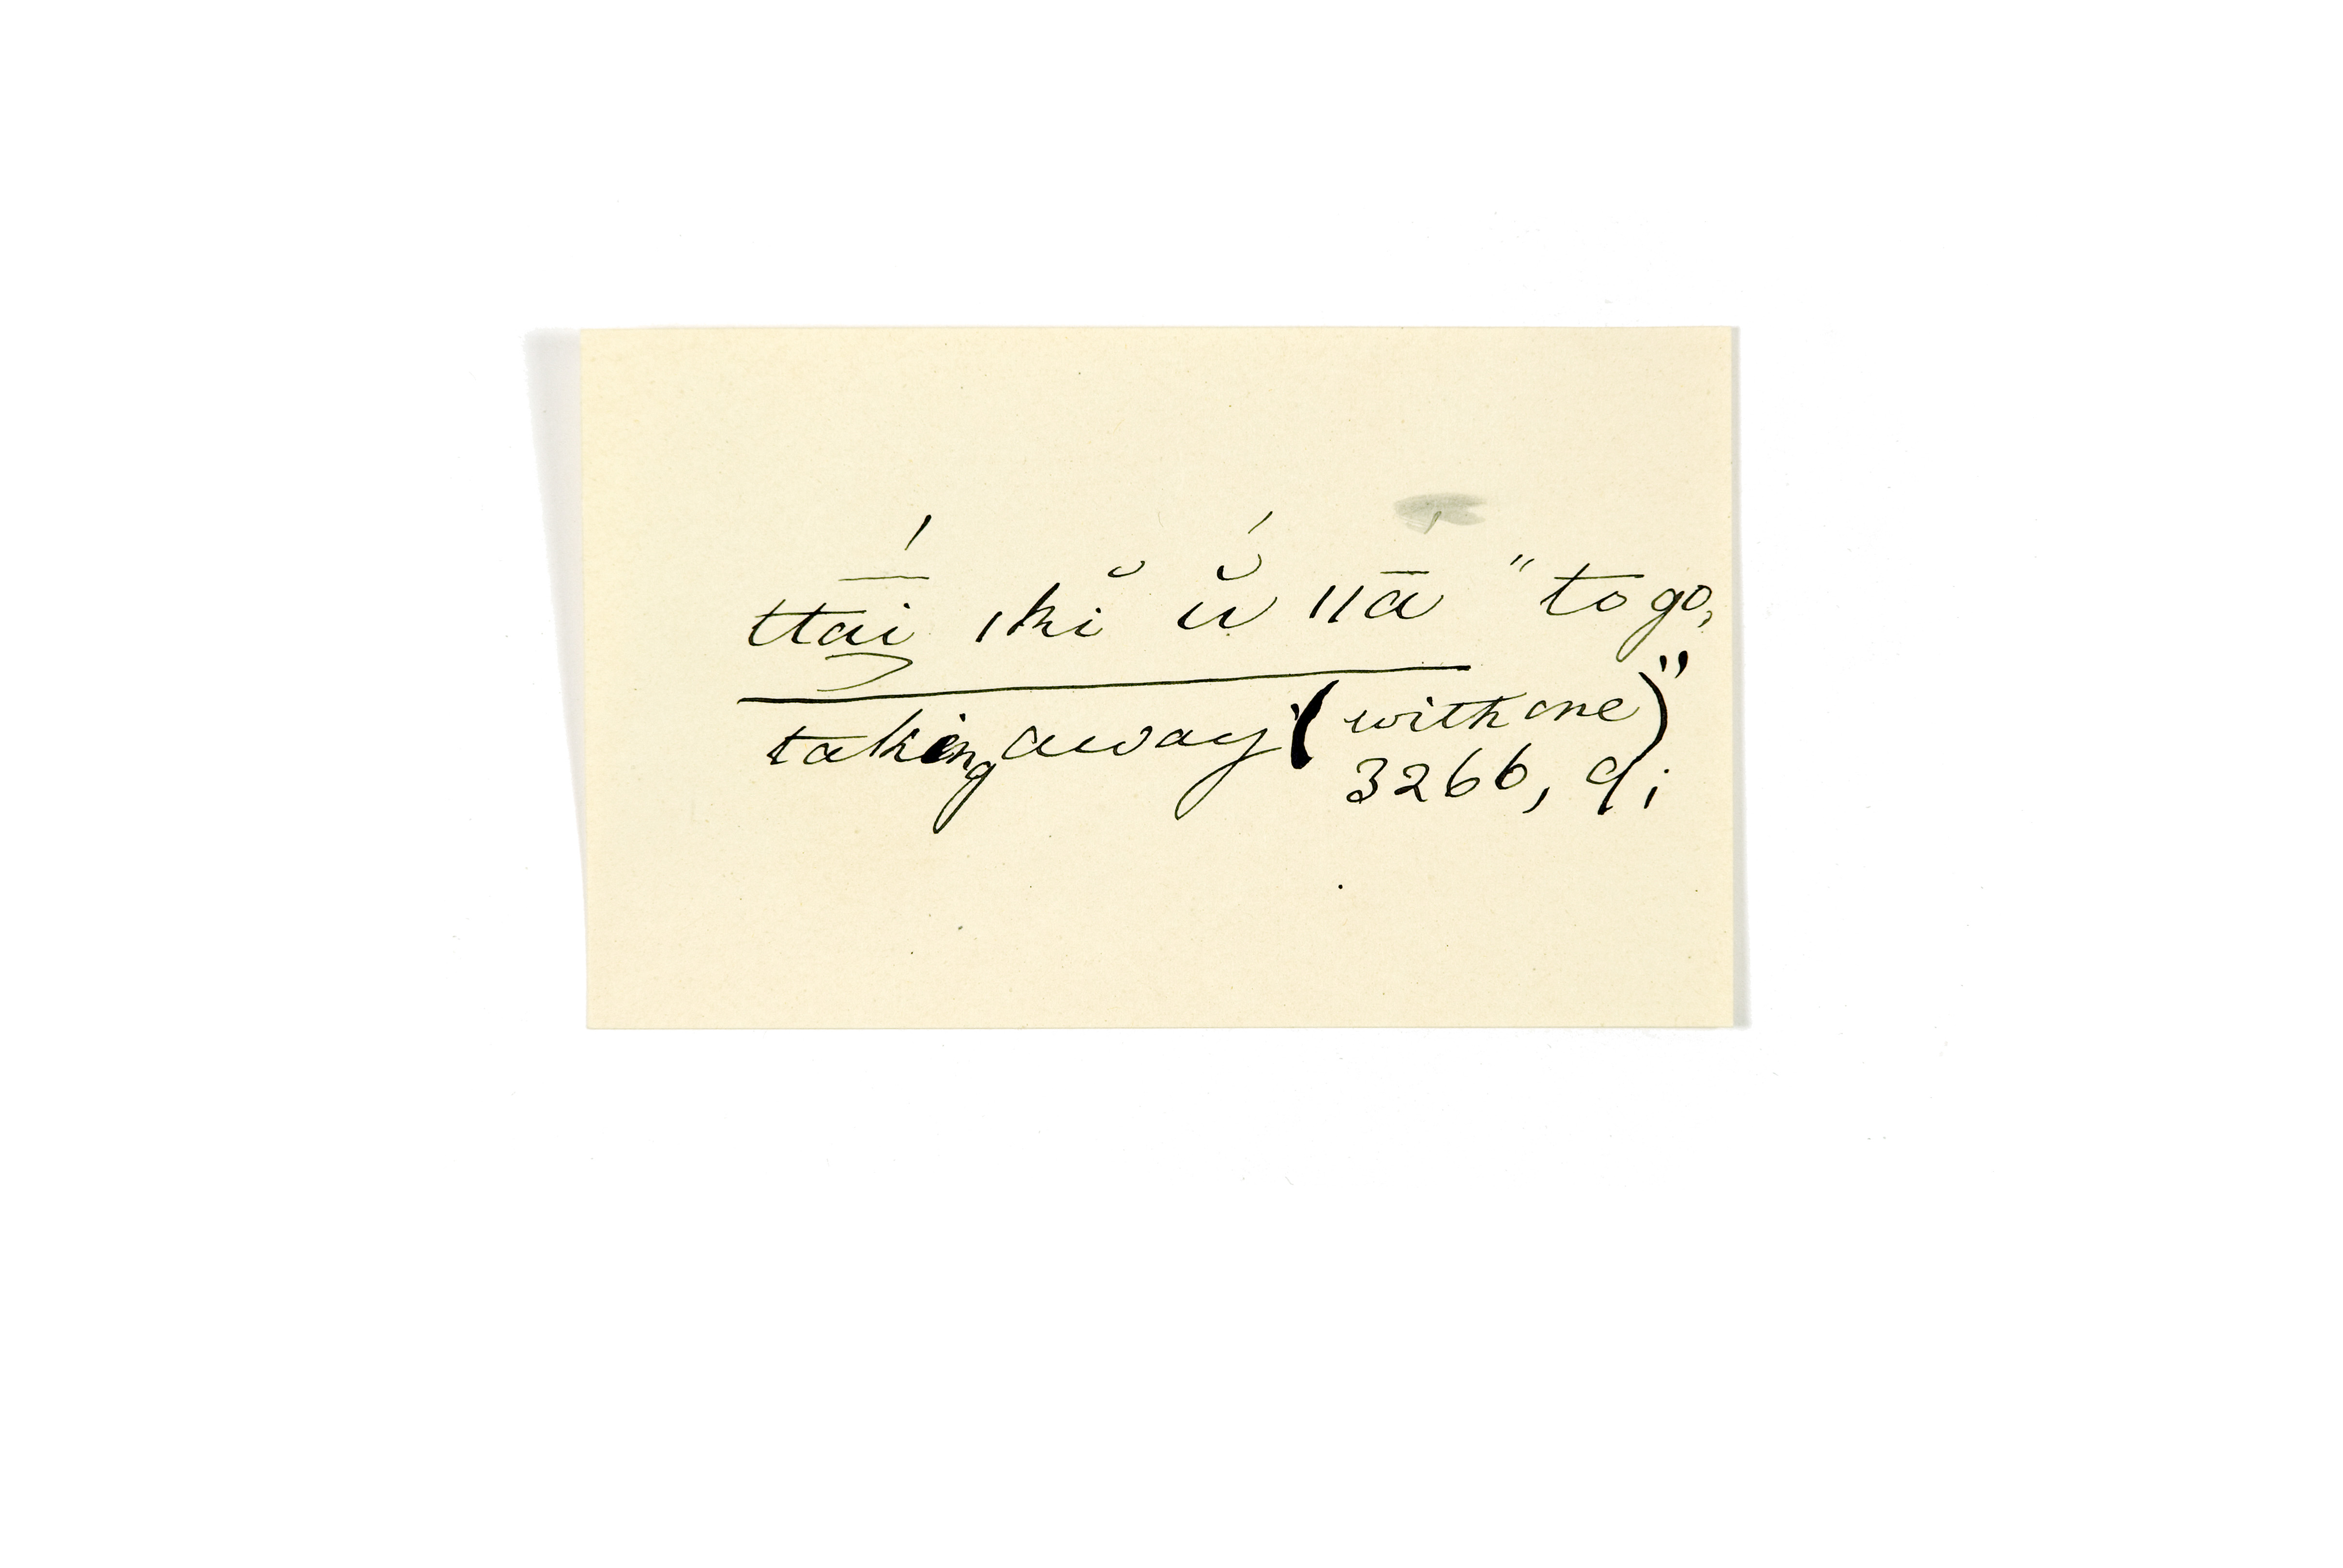 ttā́i̯ ıkĭ ŭ́ ııā́ "to go,
taking away (with one)"
3266, 9;